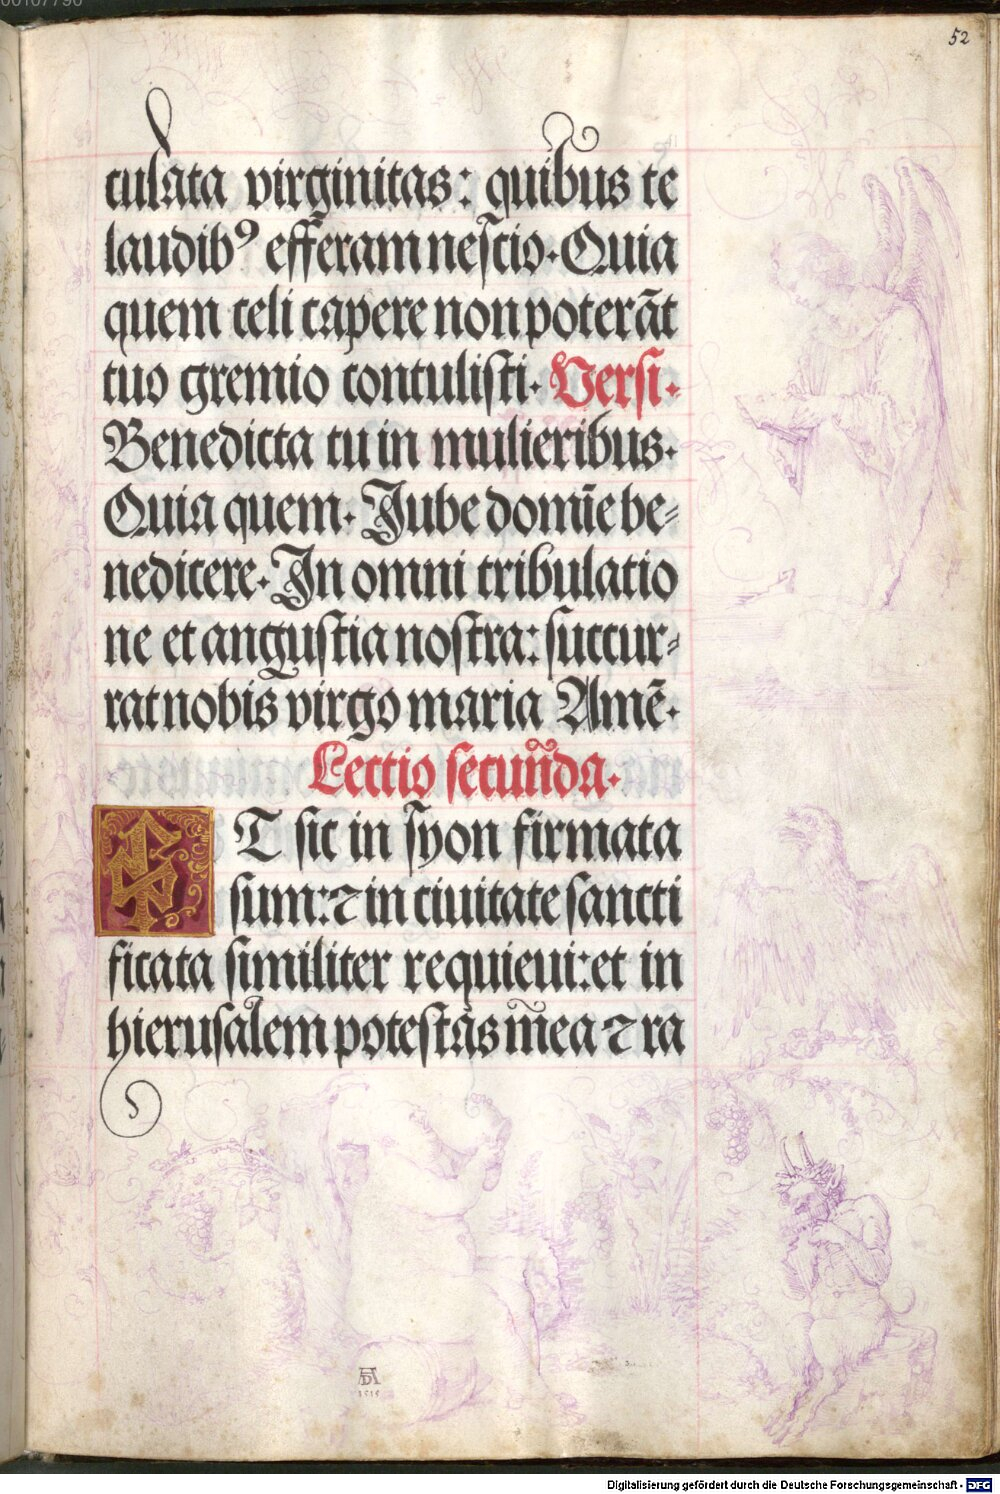 52
culata virginitas: quibus te
laudibꝰ efferam nescio. Quia
quem celi capere non poterāt
tuo gremio contulisti. Versi.
Benedicta tu in mulieribus.
Quia quem. Jube domīe be⸗
nedicere. In omni tribulatio
ne et angustia nostra: succur⸗
rat nobis virgo maria Amē.
Lectio secūnda.
ET sic in syon firmata
sum: ⁊ in ciuitate sancti
ficata similiter requieui: et in
hierusalem potestas mea ⁊ ra
AD
1515
Digitalisierung gefördert durch die Deutsche Forschungsgemeinschaft - DFG